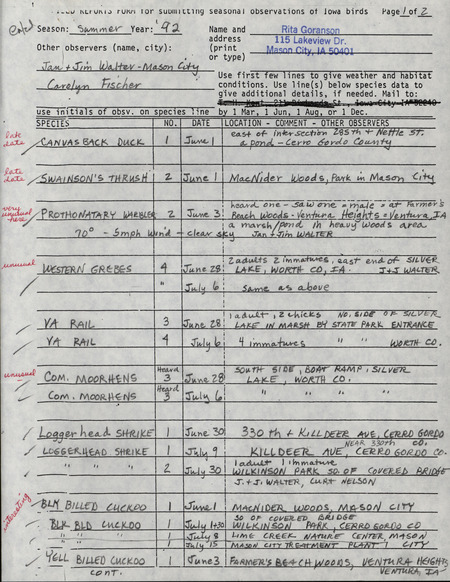 FIELD REPORTS FORM for submitting seasonal observations of Iowa birds Page 1 of 2
Season: Summer Year: '92 Name and Rita Goranson
address 115 Lakeview Dr.
Other observers (name, city): (print Mason City, IA 50401
or type)
Jan + Jim Walter - Mason City
Carolyn Fischer
Use first few lines to give weather and habitat
conditions. Use line(s) below species data to
give additional details, if needed. Mail to:
use initials of obsv. on species line by 1 Mar, 1 Jun, 1 Aug, or 1 Dec.
SPECIES NO. DATE LOCATION - COMMENT - OTHER OBSERVERS
late date
east of intersection 285th + Nettle St.
CANVASBACK DUCK 1 June 1 a pond - Cerro Gordo County
late date
SWAINSON'S THRUSH 2 June 1 MacNider Woods, Park in Mason City
very unusual here
heard one - saw one - male - at Farmer's
PROTHONATARY WARBLER 2 June 3 Beach Woods - Ventura Heights - Ventura, IA
a marsh/pond in heavy woods area
70° - 5mph wind - clear sky Jan + Jim WALTER
unusual
2 adults 2 immatures, east end of SILVER
WESTERN GREBES 4 June 28 LAKE, WORTH CO, IA. J+J WALTER
" July 6 same as above
1 adult, 2 chicks NO. SIDE OF SILVER
VA RAIL 3 June 28 LAKE IN MARSH BY STATE PARK ENTRANCE
VA RAIL 4 July 6 4 immatures " " WORTH CO.
unusual
Heard SOUTH SIDE, BOAT RAMP, SILVER
COM. MOORHENS 3 June 28 LAKE, WORTH CO.
Heard
COM. MOORHENS 3 July 6 " " " "
Loggerhead SHRIKE 1 June 30 330th + KILLDEER AVE, CERRO GORDO CO.
NEAR 330th
LOGGERHEAD SHRIKE 1 July 9 KILLDEER AVE, CERRO GORDO CO.
1 adult 1 immature
" " 2 July 30 WILKINSON PARK SO. OF COVERED BRIDGE
J. + J. WALTER, CURT NELSON
interesting
BLK BILLED CUCKOO 1 June 1 MACNIDER WOODS, MASON CITY
SO OF COVERED BRIDGE
BLK BLD CUCKOO 1 July 1+30 WILKINSON PARK, CERRO GORDO CO
" " " 1 July 8 LIME CREEK NATURE CENTER, MASON CITY
" " " 1 July 15 MASON CITY TREATMENT PLANT
YELL BILLED CUCKOO 1 June 3 FARMER'S BEACH WOODS, VENTURA HEIGHTS
cont. VENTURA, IA